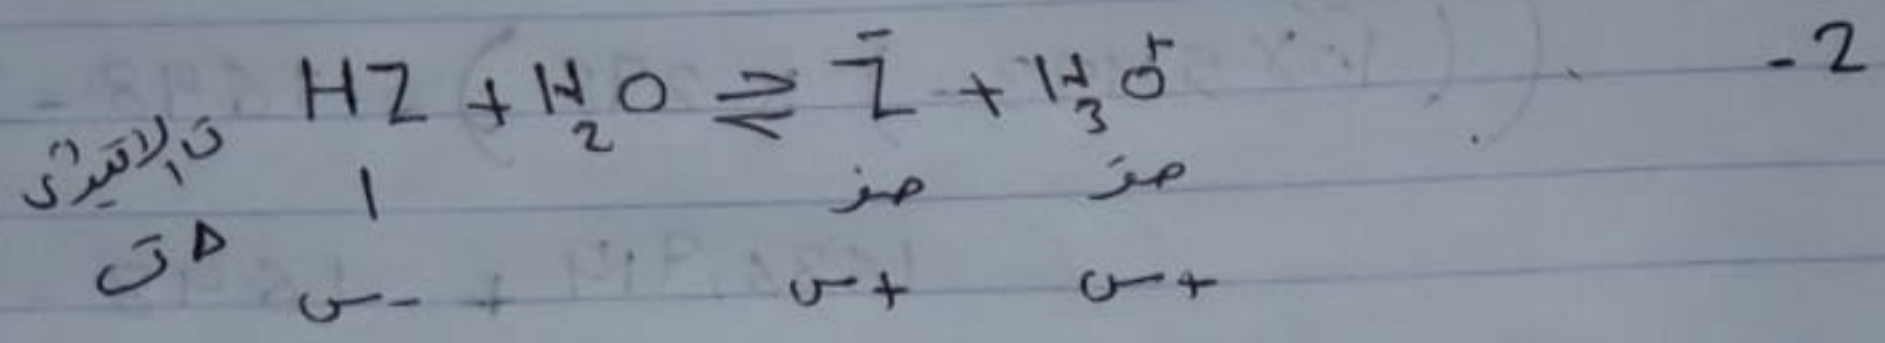 HZ + H₂O ⇌ Z⁻ + H₃O⁺ -2
ت الابتدائي 1 صفر صفر
Δت س- س+ س+